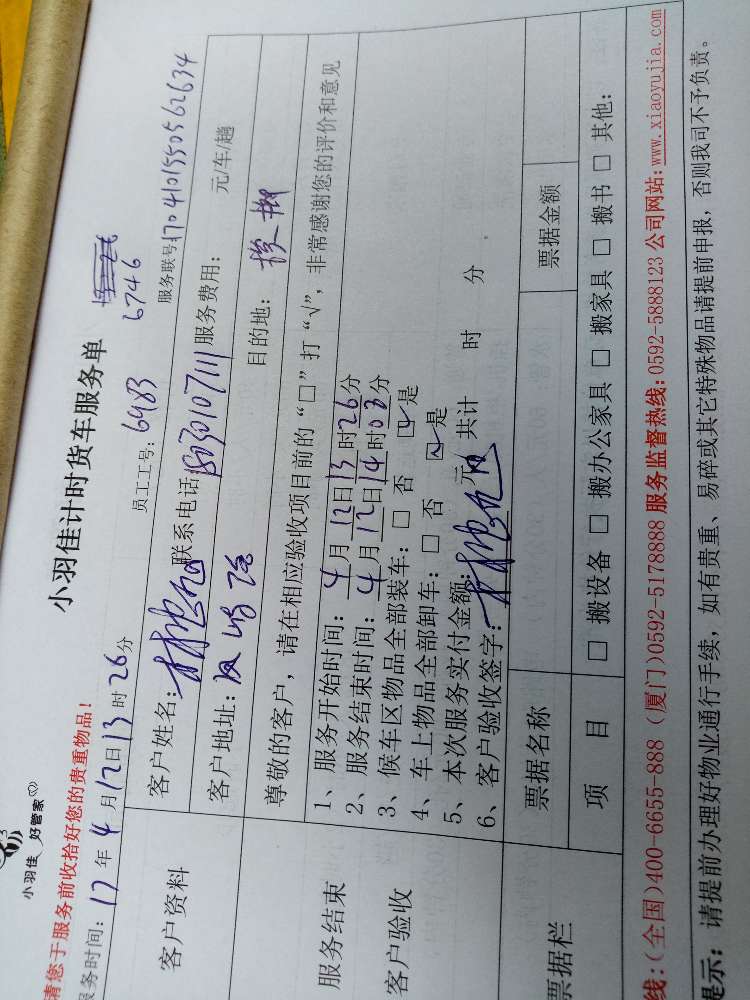 小羽佳 好管家
小羽佳计时货车服务单
请您于服务前收拾好您的贵重物品!
服务时间: 17年4月12日13时26分 员工工号: 6983 6746 服务联号1704101550562634
客户资料
客户姓名: 联系电话18030107111 服务费用: 元/车/趟
客户地址: 目的地:
服务结束
客户验收
尊敬的客户, 请在相应验收项目前的“□”打“√”, 非常感谢您的评价和意见
1、服务开始时间: 4月12日13时26分
2、服务结束时间: 4月12日14时03分
3、候车区物品全部装车: □ 否 ☑是
4、车上物品全部卸车: □ 否 ☑是
5、本次服务实付金额: 元 共计 时 分
6、客户验收签字:
票据栏
票据名称 票据金额
项 目 □ 搬设备 □ 搬办公家具 □ 搬家具 □ 搬书 □ 其他:
线:(全国)400-6655-888 (厦门)0592-5178888 服务监督热线:0592-5888123 公司网站:www.xiaoyujia.com
提示: 请提前办理好物业通行手续, 如有贵重、易碎或其它特殊物品请提前申报, 否则我司不予负责。